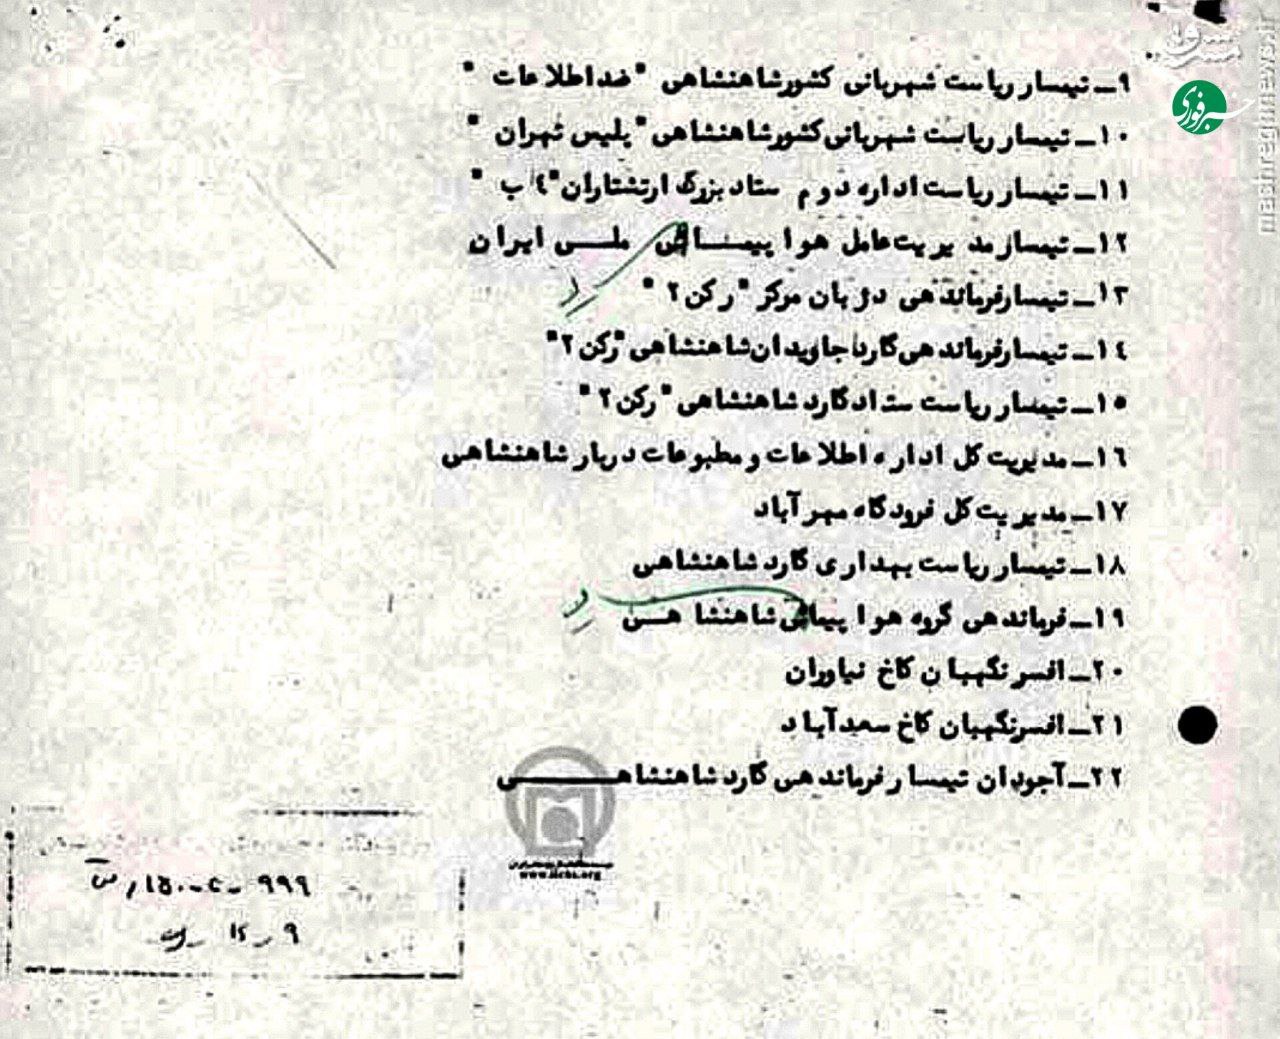 ۹ـ تیمسار ریاست شهربانی کشورشاهنشاهی "ضد اطلاعات "
۱۰ـ تیمسار ریاست شهربانی کشورشاهنشاهی "پلیس تهران "
۱۱ـ تیمسار ریاست اداره دوم ستاد بزرگ ارتشتاران "۴ ب "
۱۲ـ تیمسار مدیریت عامل هواپیمائی ملی ایران
۱۳ـ تیمسار فرماندهی دژبان مرکز "رکن ۲ "
۱۴ـ تیمسار فرماندهی گارد جاویدان شاهنشاهی "رکن ۲"
۱۵ـ تیمسار ریاست ستاد گارد شاهنشاهی "رکن ۲ "
۱۶ـ مدیریت کل اداره اطلاعات و مطبوعات دربار شاهنشاهی
۱۷ـ مدیریت کل فرودگاه مهرآباد
۱۸ـ تیمسار ریاست بهداری گارد شاهنشاهی
۱۹ـ فرماندهی گروه هواپیمائی شاهنشاهی
۲۰ـ افسر نگهبان کاخ نیاوران
۲۱ـ افسر نگهبان کاخ سعدآباد
۲۲ـ آجودان تیمسار فرماندهی گارد شاهنشاهی
خبر فوری
مشرق
mashreghnews.ir
www.iichs.org